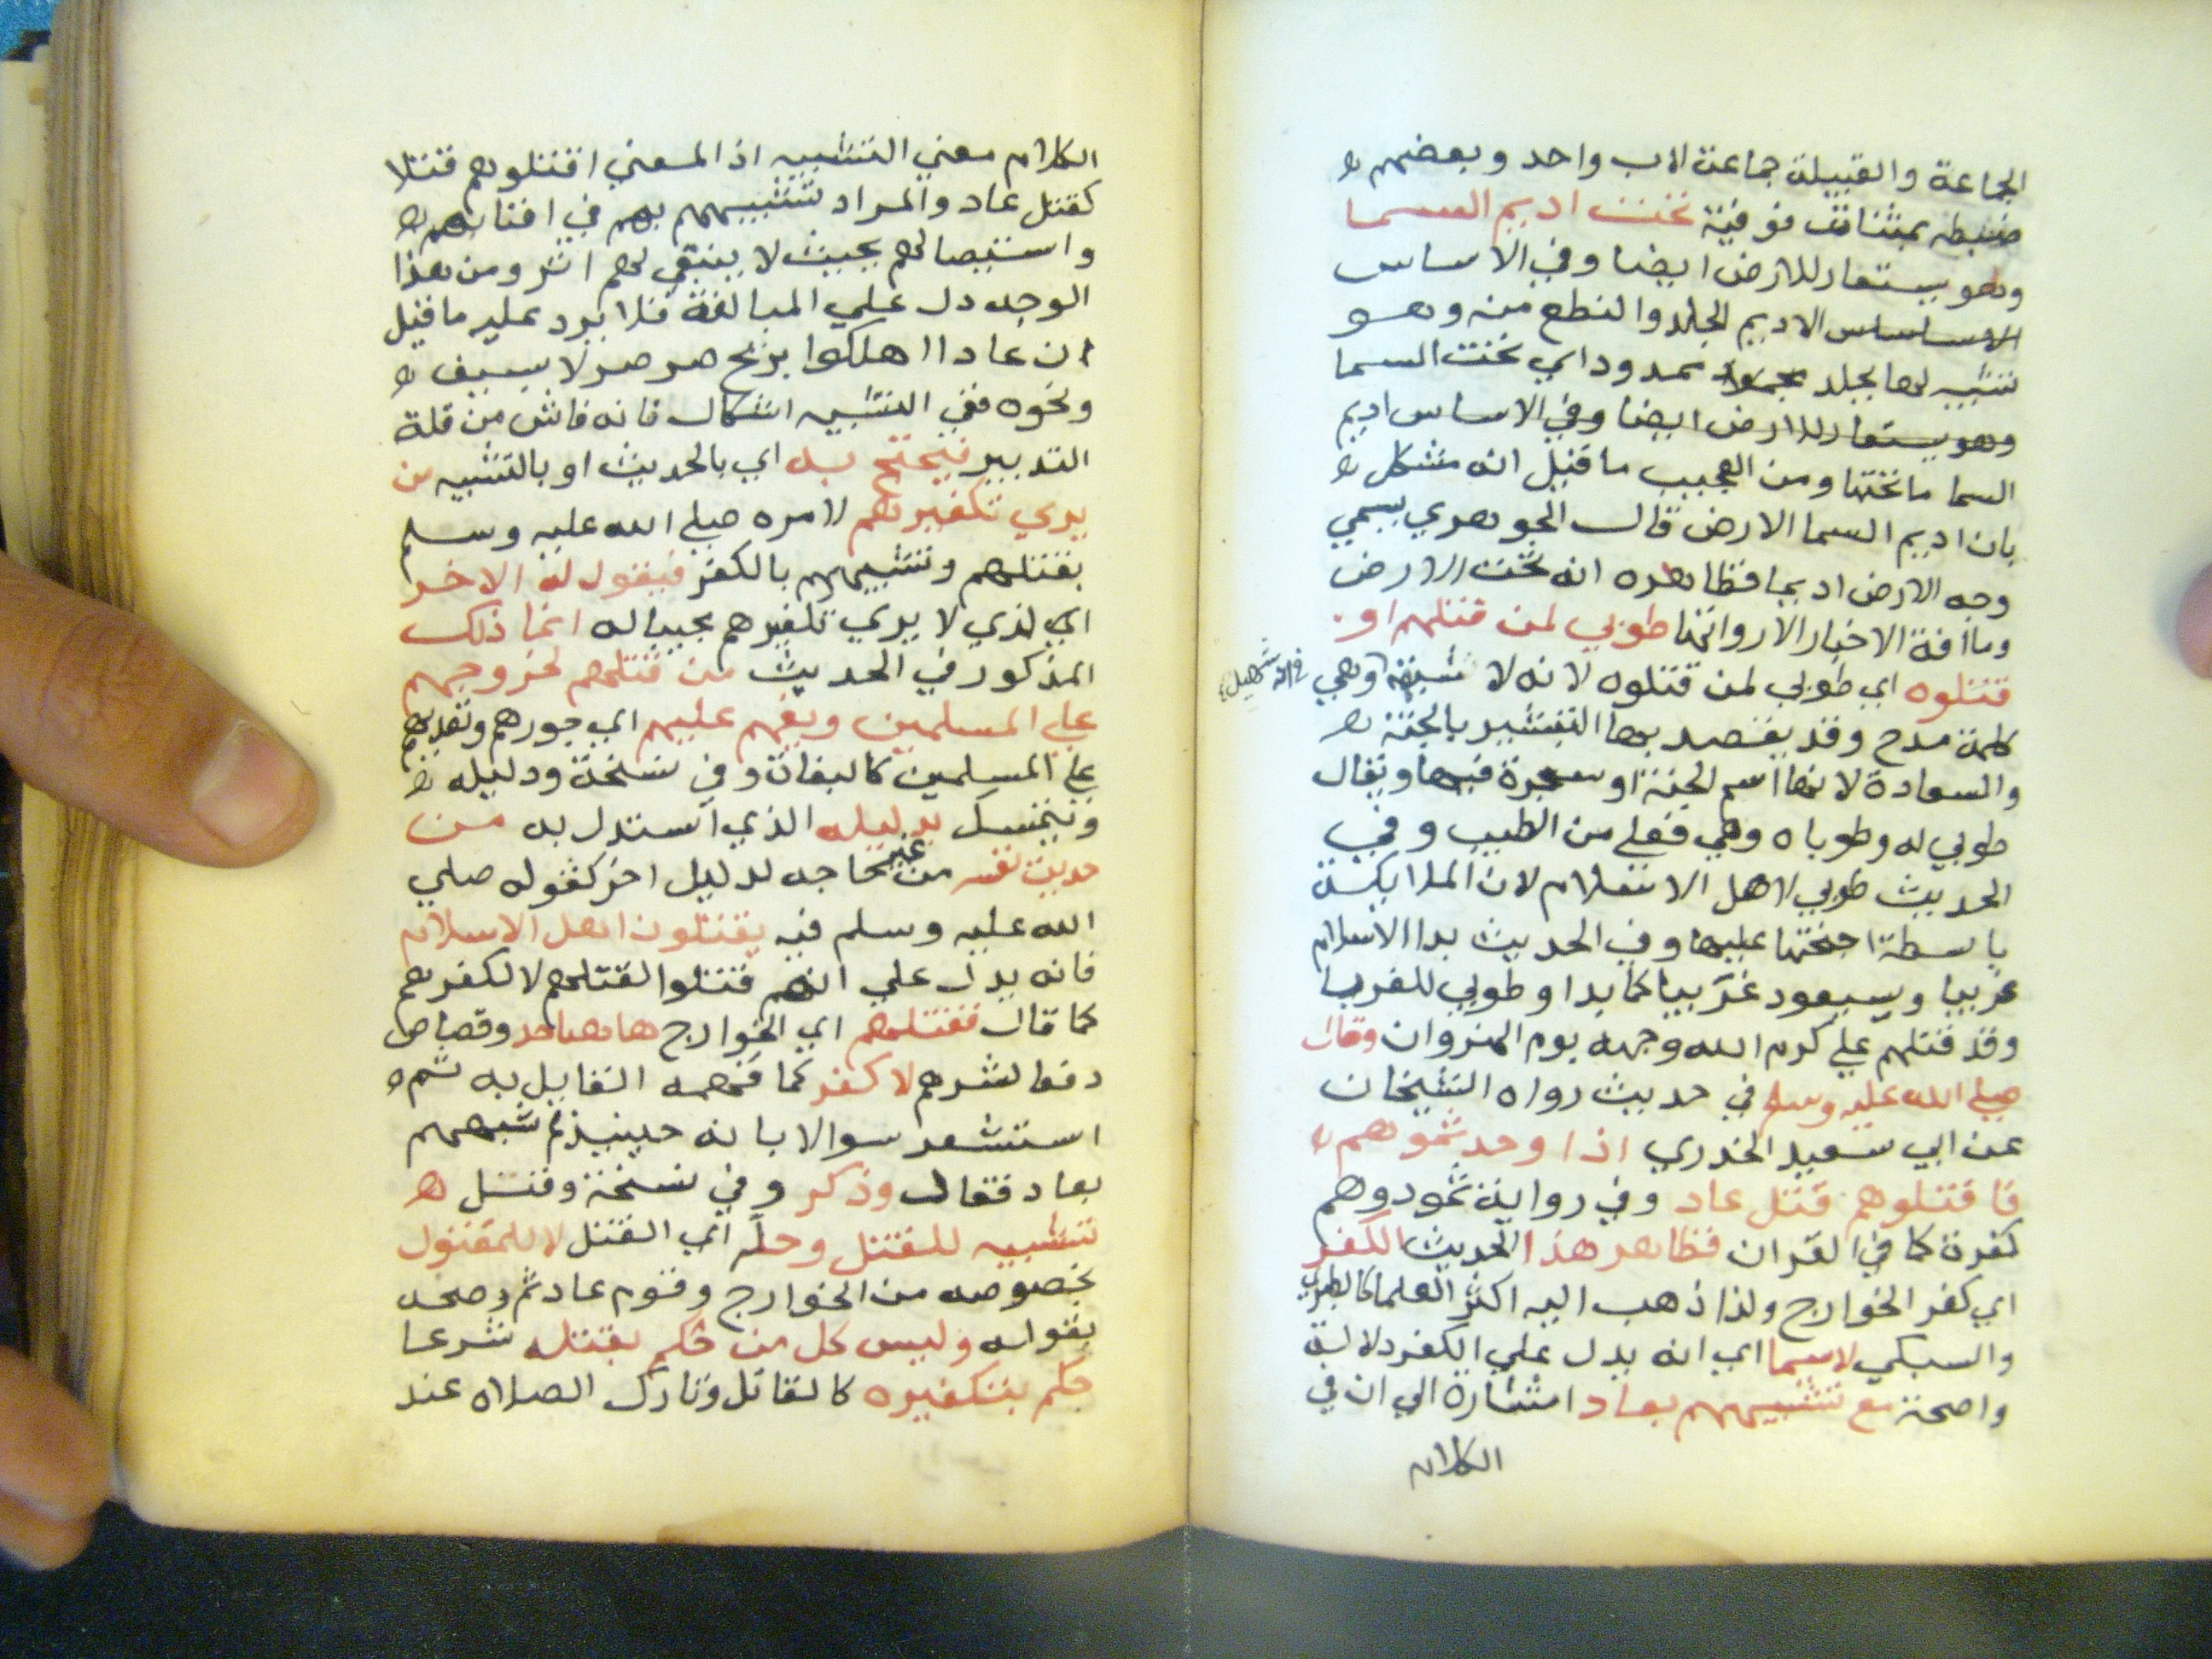 الجماعة والقبيلة جماعة لاب واحد وبعضهم
ضبطه بمثناة فوقية تحت اديم السما
وهو يستعار للارض ايضا وفي الاساس
الاساس الاديم الجلد والنطع منه وهو
تشبيه لها بجلد ممدود اي تحت السما
وهو يستعار للارض ايضا وفي الاساس اديم
السما ما تحتها ومن العجيب ما قيل انه مشكل
بان اديم السما الارض قال الجوهري يسمي
وجه الارض اديما فظاهره انه تحت الارض
وما افة الاخبار الا رواتها طوبي لمن قتلهم او
قتلوه اي طوبي لمن قتلوه لانه لا وهي
كلمة مدح وقد يقصد بها التبشير بالجنة
والسعادة لانها اسم الجنة او شجرة فيها ويقال
طوبي له وطوباه وهي فعلي من الطيب وفي
الحديث طوبي لاهل الاسلام لان الملايكة
باسطة اجنحتها عليها وفي الحديث بدا الاسلام
غريبا وسيعود غريبا كما بدا وطوبي للغربا
وقد قتلهم علي كرم الله وجهه يوم النهروان وقال
صلي الله عليه وسلم في حديث رواه الشيخان
عن ابي سعيد الخدري اذا وجدتموهم
فاقتلوهم قتل عاد وفي رواية ثمود وهم
كفرة كما في القران فظاهر هذا الحديث الكفر
اي كفر الخوارج ولذا ذهب اليه اكثر العلما كالطبري
والسبكي لاسيما اي انه يدل علي الكفر دلالة
واضحة مع تشبيههم بعاد اشارة الي ان في
الكلام
الكلام معني التشبيه اذ المعني اقتلوهم قتلا
كقتل عاد والمراد تشبيههم بهم في افنائهم
واستيصالهم بحيث لا يبقي لهم اثر ومن هذا
الوجه دل علي المبالغة فلا يرد عليه ما قيل
ان عادا اهلكوا بريح صرصر لا بسيف
ونحوه ففي التشبيه اشكال فانه ناش من قلة
التدبير فيحتج به اي بالحديث او بالتشبيه من
يري تكفيرهم لامره صلي الله عليه وسلم
بقتلهم وتشبيههم بالكفر فيقول له الاخر
اي الذي لا يري تكفيرهم مجيبا له انما ذلك
المذكور في الحديث من قتلهم لخروجهم
علي المسلمين وبغيهم عليهم اي جورهم وتعديهم
علي المسلمين كالبغاة وفي نسخة ودليله
ويتمسك بدليله الذي استدل به من
حديث نفسه من غير حاجه لدليل اخر كقوله صلي
الله عليه وسلم فيه يقتلون اهل الاسلام
فانه يدل علي انهم قتلوا لقتلهم لا لكفرهم
كما قال فقتلهم اي الخوارج هاهنا حد وقصاص
دفعا لشرهم لا كفر كما فهمه القايل به ثم
استشعر سوالا بانه حينيذ لم شبههم
بعاد فقال وذكر وفي نسخة وقتل
تشبيه للقتل وحله اي القتل لا للمقتول
بخصوصه من الخوارج وقوم عاد ثم وضحه
بقوله وليس كل من حكم بقتله شرعا
حكم بتكفيره كالقاتل وتارك الصلاه عند